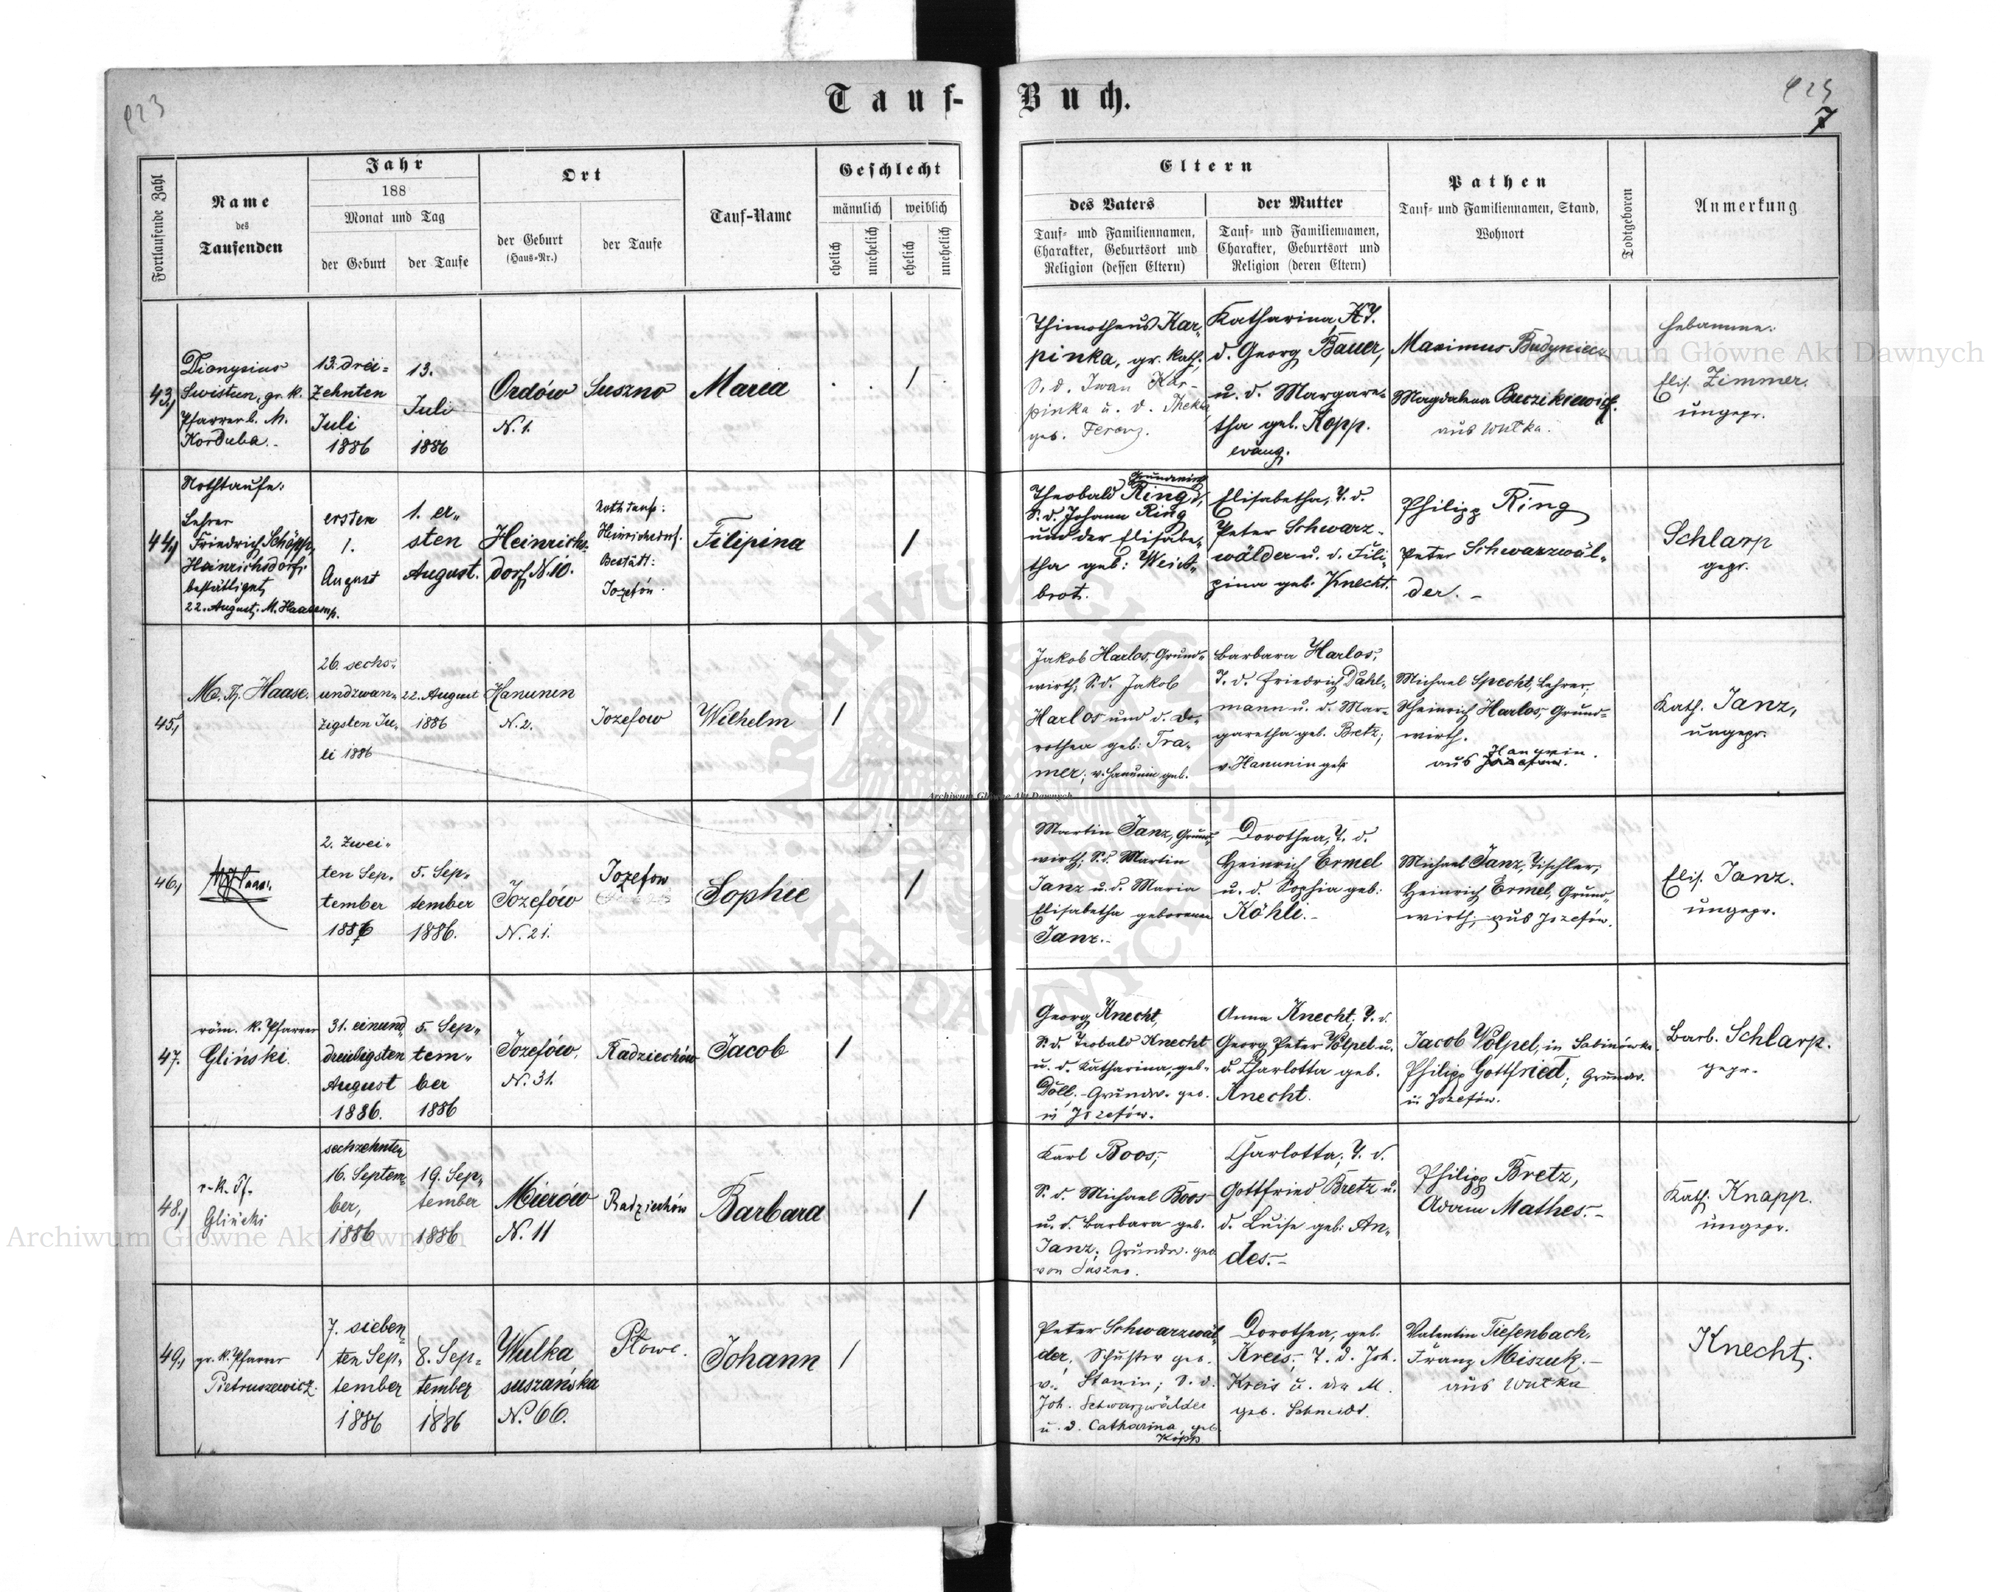 Tauf-
Buch.
7
Fortlaufende Zahl
Name
des
Taufenden
Jahr
188
Monat und Tag
der Geburt
der Taufe
Ort
der Geburt
(Haus-Nr.)
der Taufe
Tauf-Name
Geschlecht
männlich
weiblich
ehelich
unehelich
ehelich
unehelich
Eltern
des Vaters
Tauf- und Familiennamen,
Charakter, Geburtsort und
Religion (dessen Eltern)
der Mutter
Tauf- und Familiennamen,
Charakter, Geburtsort und
Religion (deren Eltern)
Pathen
Tauf- und Familiennamen, Stand,
Wohnort
Todtgeboren
Anmerkung
43.,
Dionysius
Swistun, gr. k.
Pfarrer b. M.
Korduba.
13. drei=
zehnten
Juli
1886
13.
Juli
1886
Ordów
N. 1.
Suszno
Maria
Thimotheus Kar-
pinka, gr. kath.
S. d. Iwan Kar-
pinka u. d. Thekla
geb. Feronz.
Katharina, T.
d. Georg Bauer,
u. d. Margare-
tha geb. Kopp.
evang.
Maximus
Magdalena
aus Wulka.
Hebamme:
Elis. Zimmer.
ungepr.
44.,
Nothtaufe:
Lehrer
Friedrich Schöpp,
Heinrichsdorf;
bestättiget
22. August; M. Haase mp.
ersten
1.
August
1. er-
sten
August.
Heinrichs-
dorf N. 10.
Nothtaufe:
Heinrichsdorf.
Bestätt:
Jozefów.
Filipina
Theobald Ring,
S. d. Johann Ring
und der Elisabe-
tha geb: Weiss-
brot.
Elisabetha, T. d.
Peter Schwarz-
wälder u. d. Fili-
pina geb. Knecht.
Philipp Ring
Peter Schwarzwäl-
der.
Schlarp
gepr.
45.,
M. Th. Haase.
26. sechs-
undzwan-
zigsten Ju-
li 1886
22. August
1886
Hanunin
N. 2.
Jozefow
Wilhelm
Jakob Harlos, Grund-
wirth; S. d. Jakob
Harlos und d. Do-
rothea geb: Tra-
mer; v. Hanunin geb.
Barbara Harlos;
T. d. Friedrich Dahl-
mann u. d. Mar-
garetha geb. Bretz;
v. Hanunin geb.
Michael Specht, Lehrer;
Heinrich Harlos, Grund-
wirth.
Hanunin.
aus Jozefow.
Kath. Janz,
ungepr.
46.,
2. zwei-
ten Sep-
tember
1886
5. Sep-
tember
1886.
Jozefów
N. 21.
Jozefow
Sophie
Martin Janz, Grund-
wirth; S. d. Martin
Janz u. d. Maria
Elisabetha geborenen
Janz.
Dorothea, T. d.
Heinrich Ermel
u. d. Sophia geb:
Köhli.
Michael Janz, Tischler;
Heinrich Ermel, Grund-
wirth; aus Jozefów.
Elis. Janz.
ungepr.
47.
röm. k. Pfarrer
Gliński.
31. einund-
dreißigsten
August
1886.
5. Sep-
tem-
ber
1886
Jozefów.
N. 31.
Radziechów
Jacob
Georg Knecht,
S. d. Teobald Knecht
u. d. Katharina, geb.
Döll. Grundw. geb.
in Jozefów.
Anna Knecht; T. d.
Georg Peter Völpel u.
d. Charlotta geb.
Knecht.
Jacob Völpel, in Sabinówka.
Philipp Gottfried; Grundw.
in Jozefów.
Barb. Schlarp.
gepr.
48.,
r. k. Pf.
Gliński
sechzehnten
16. Septem-
ber,
1886
19. Sep-
tember
1886
Mierów
N. 11
Radziechów
Barbara
Karl Boos;
S. d. Michael Boos
u. d. Barbara geb.
Janz; Grundw. geb
von Suszno.
Charlotta, T. d.
Gottfried Bretz u.
d. Luise geb: An-
des.
Philipp Bretz,
Adam Mathes.
Kath. Knapp.
ungepr.
49.,
gr. k. Pfarrer
Pietruszewicz.
7. sieben-
ten Sep-
tember
1886
8. Sep-
tember
1886
Wulka
suszańska
N. 66.
Płowe.
Johann
Peter Schwarzwäl-
der, Schuster geb.
v. Stanin; S. d.
Joh. Schwarzwälder
u. d. Catharina, geb.
Kopp
Dorothea, geb.
Kreis; T. d. Joh.
Kreis u. der M.
geb. Schmidt.
Valentin Tiefenbach,
Franz Miszuk.
aus Wulka
Knecht.
Archiwum Główne Akt Dawnych
Archiwum Główne Akt Dawnych
Archiwum Główne Akt Dawnych